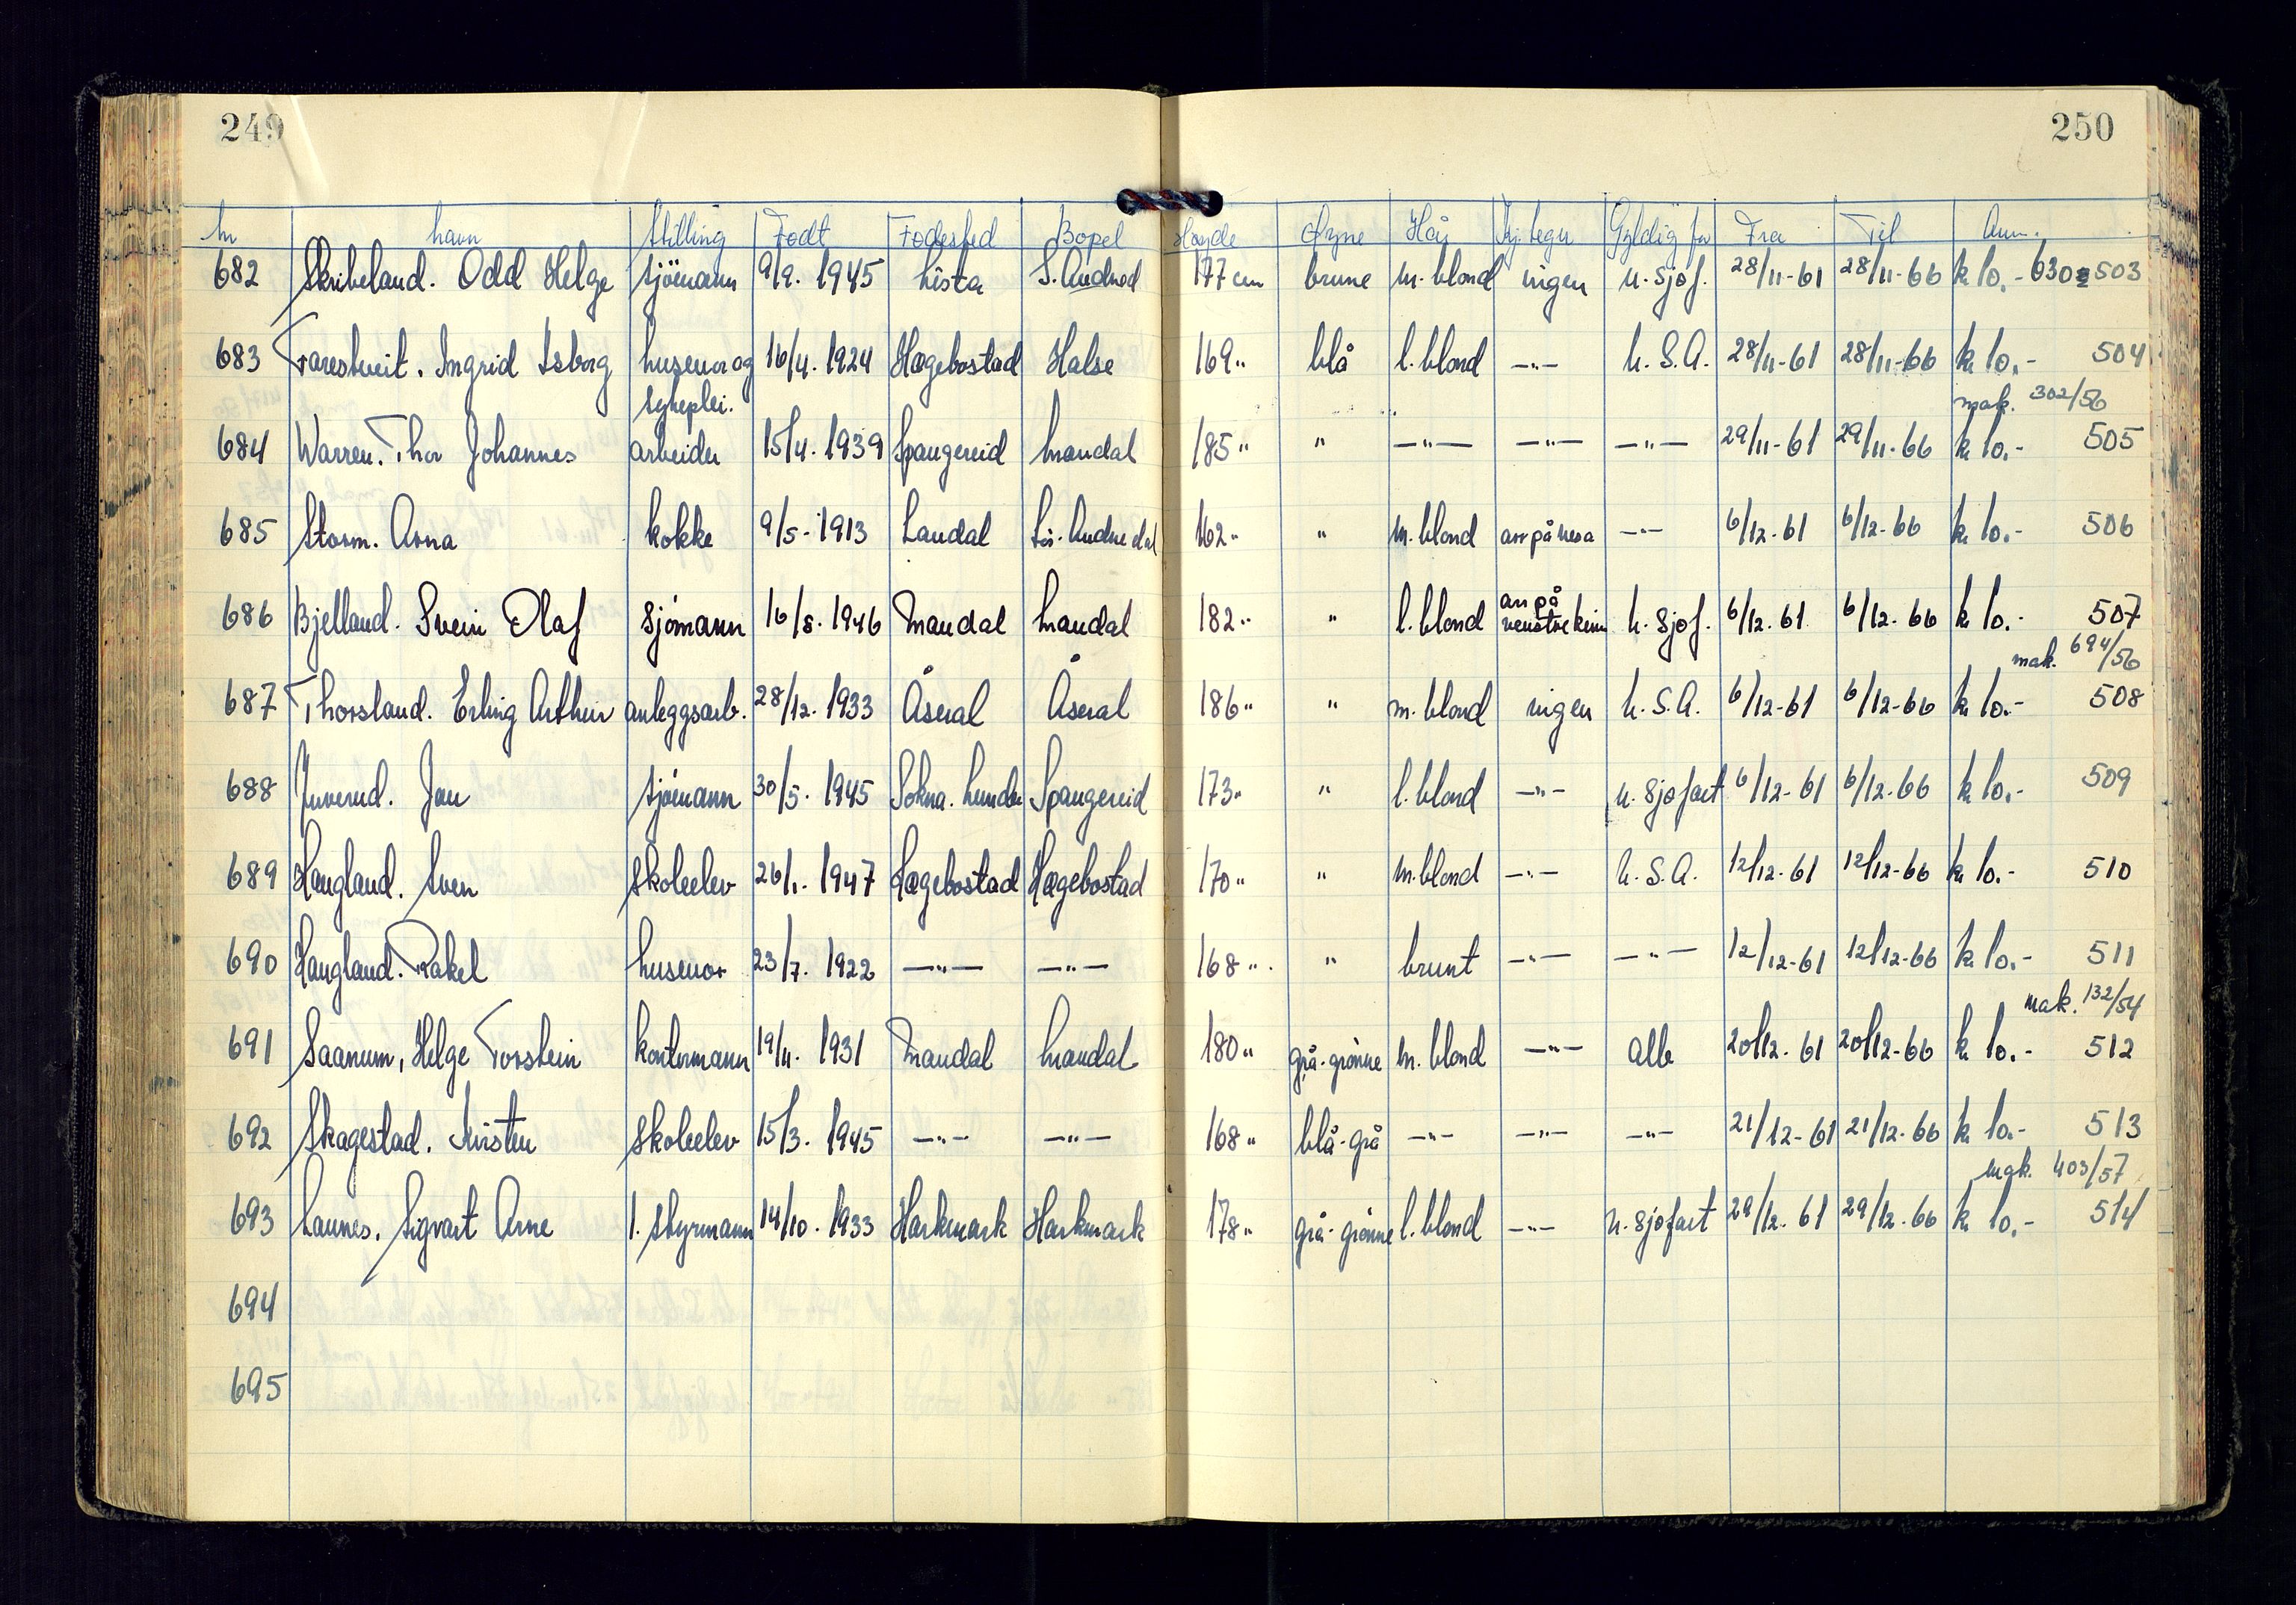 249
250
Nr Navn Stilling Født Fødested Bopel Høyde Øyne Hår Kj.tegn Gyldig for Fra Til Anm.
682 Skribeland. Odd Helge sjömann 9/9. 1945 Lista S. Audned 177 cm brune m. blond ingen u. sjøf. 28/11-61 28/11-66 kr 10.- 630 503
683 Tarestveit. Ingrid Isborg husmor og 16/4. 1924 Hægebostad Halse 169 " blå l. blond -"- U.S.A. 28/11-61 28/11-66 kr 10.- 504
sykeplei. mak. 302/56
684 Warren. Thor Johannes arbeider 15/4. 1939 Spangereid Mandal 185 " " -"- -"- -"- 29/11-61 29/11-66 kr 10.- 505
685 Storm. Arna kokke 9/5. 1913 Laudal Sör-Audnedal 162 " " m. blond arr på nesa -"- 6/12-61 6/12-66 kr 10.- 506
arr på
686 Bjelland. Svein Olaf sjømann 16/8. 1946 Mandal Mandal 182 " " l. blond venstre kinn u. sjøf. 6/12-61 6/12-66 kr 10.- 507
mak. 694/56
687 Thorsland. Erling Arthur anleggsarb. 28/12. 1933 Åseral Åseral 186 " " m. blond ingen U.S.A. 6/12-61 6/12-66 kr 10.- 508
688 Juverud. Jan sjömann 30/5. 1945 Sokna. Lunder Spangereid 173 " " l. blond -"- u. sjøfart 6/12-61 6/12-66 kr 10.- 509
689 Haugland. Sven skoleelev 26/1. 1947 Hægebostad Hægebostad 170 " " m. blond -"- U.S.A. 12/12-61 12/12-66 kr 10.- 510
690 Haugland. Rakel husmor 23/7. 1922 -"- -"- 168 " " brunt -"- -"- 12/12-61 12/12-66 kr 10.- 511
mak. 132/54
691 Saanum, Helge Torstein kontormann 19/4. 1931 Mandal Mandal 180 " grå-grönne m. blond -"- alle 20/12-61 20/12-66 kr 10.- 512
692 Skagestad. Kirsten skoleelev 15/3. 1945 -"- -"- 168 " blå-grå -"- -"- -"- 21/12-61 21/12-66 kr 10.- 513
mak. 403/57
693 Launes. Sigvart Arne 1. styrmann 14/10. 1933 Harkmark Harkmark 178 " grå-grönne l. blond -"- u. sjøfart 29/12-61 29/12-66 kr 10.- 514
694
695